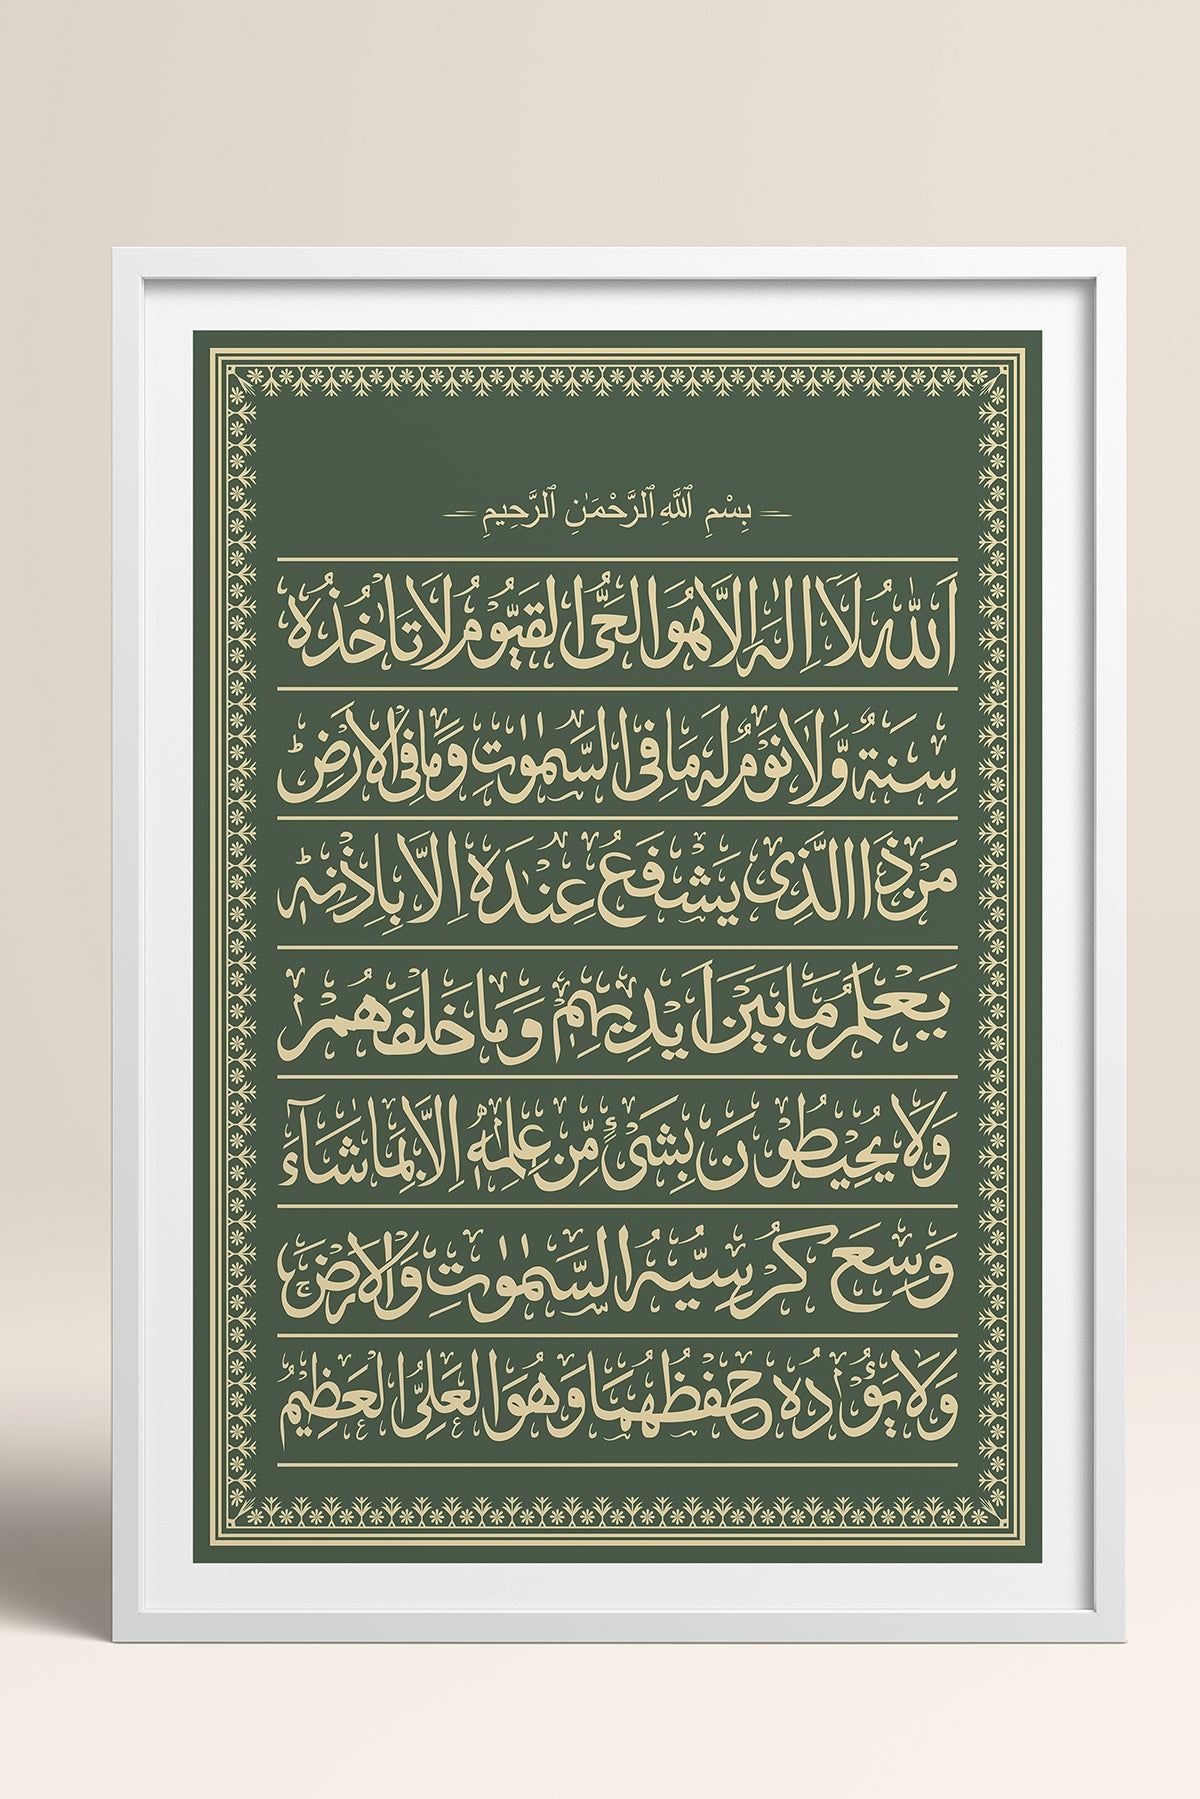 بِسْمِ ٱللَّهِ ٱلرَّحْمَٰنِ ٱلرَّحِيمِ
اَللّٰهُ لَآ اِلٰهَ اِلَّا هُوَ الْحَىُّ الْقَيُّوْمُ لَا تَاْخُذُهٗ
سِنَةٌ وَّلَا نَوْمٌ لَهٗ مَا فِى السَّمٰوٰتِ وَمَا فِى الْاَرْضِؕ
مَنْ ذَا الَّذِىْ يَشْفَعُ عِنْدَهٗ اِلَّا بِاِذْنِهٖؕ
يَعْلَمُ مَا بَيْنَ اَيْدِيْهِمْ وَمَا خَلْفَهُمْ
وَلَا يُحِيْطُوْنَ بِشَىْءٍ مِّنْ عِلْمِهٖ اِلَّا بِمَا شَآءَ
وَسِعَ كُرْسِيُّهُ السَّمٰوٰتِ وَالْاَرْضَۚ
وَلَا يَؤُدُهٗ حِفْظُهُمَا وَهُوَ الْعَلِىُّ الْعَظِيْمُ